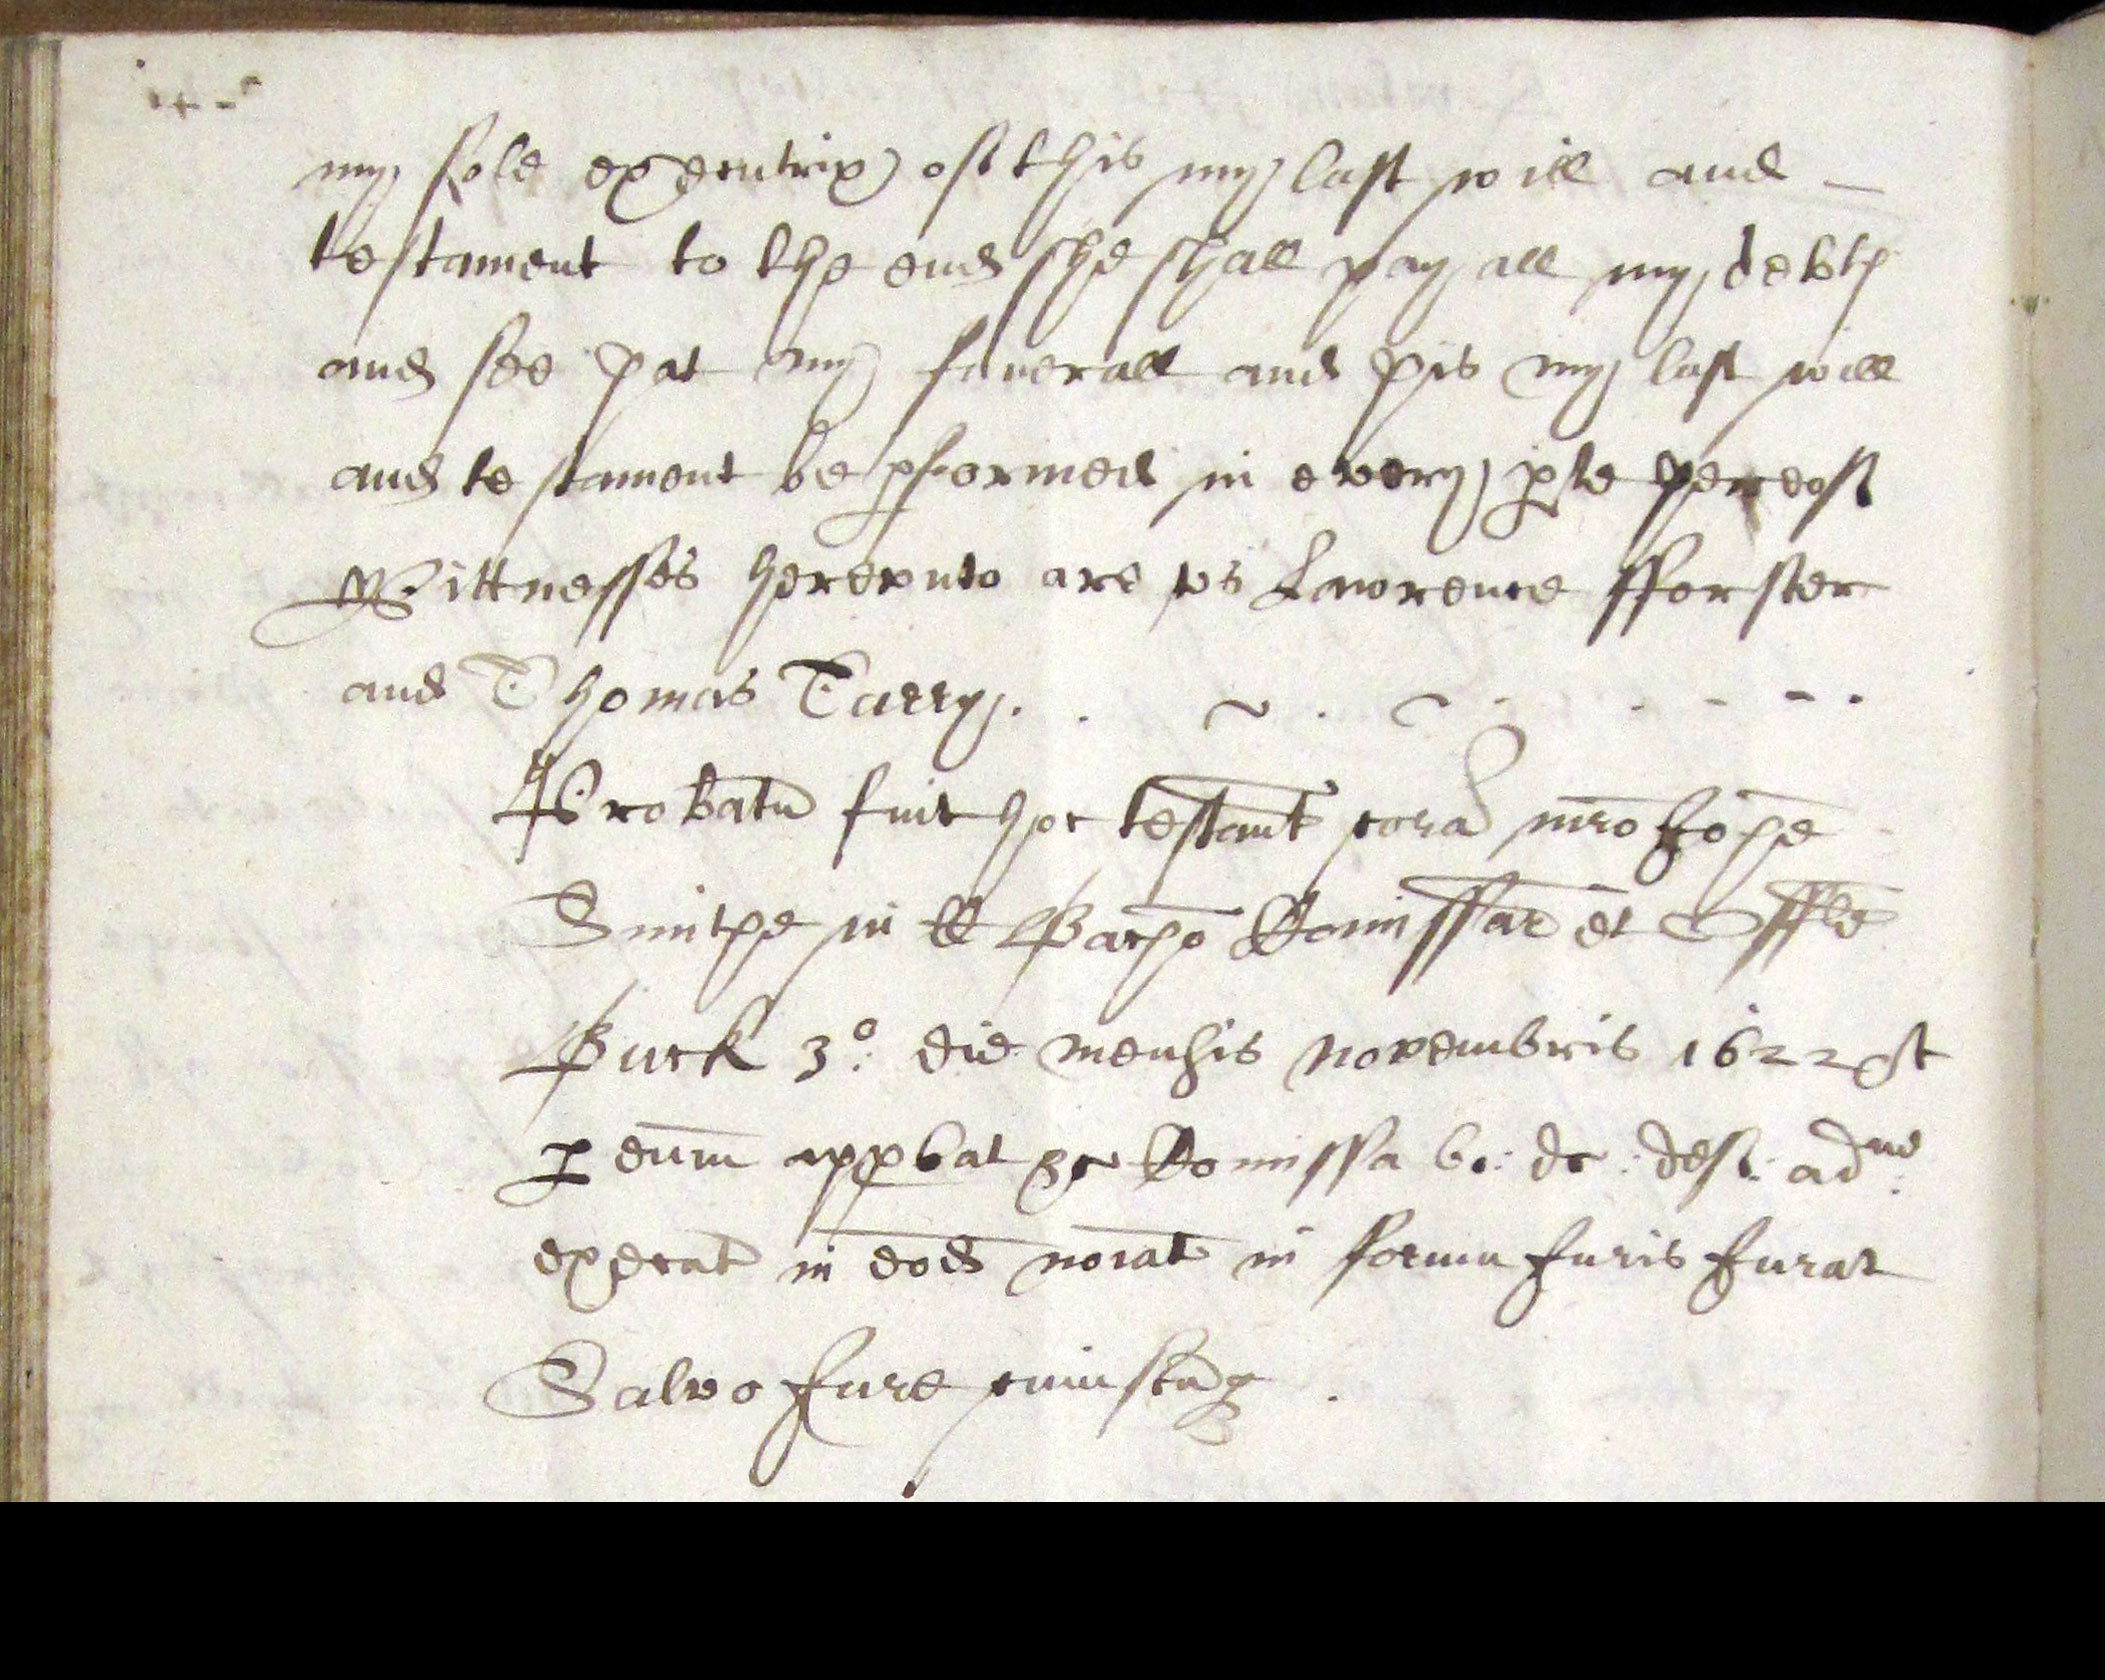 my sole executrix of this my last will and
testament to the end she shall pay all my debts
and see yat my funerall and yis my last will
and testament be pformed in every pte yereof
Wittnesses herevnto are vs Lawrence fforster
and Thomas Tarry
Probatu fuit hoc testamt cora mro Johe
Smithe in ll Bacho Comissar et Offle
Buck 3o: die mensis novembris 1622 Et
p eum appbat &c Comissa bo: dc: deft: adne:
execut in eod noiat in forma Juris Jurat
Salvo Jure cuiuscuq